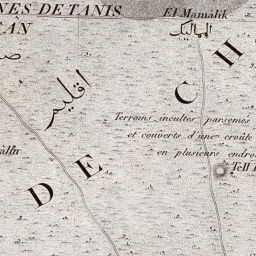 NES DE TANIS
El Mamalik
المماليك
ÂN
اقليم
DE CH
Terrains incultes parsemés
et couverts d'une croûte
en plusieurs endro
Tell